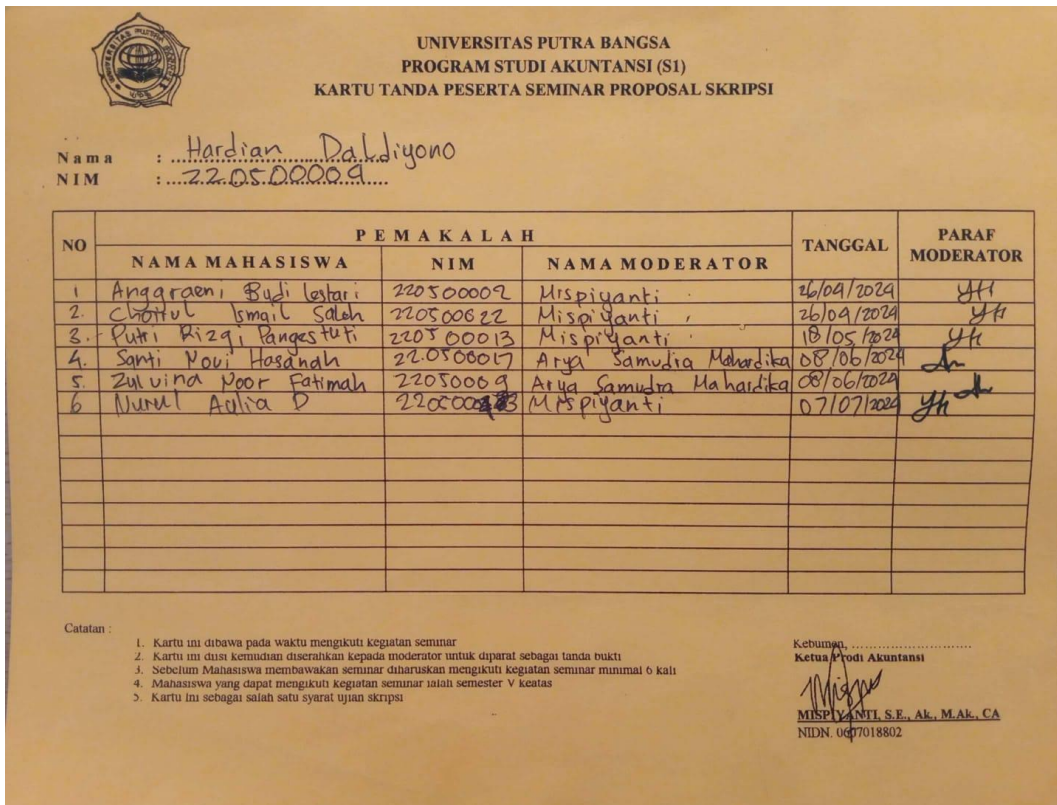 UNIVERSITAS PUTRA BANGSA
PROGRAM STUDI AKUNTANSI (S1)
KARTU TANDA PESERTA SEMINAR PROPOSAL SKRIPSI
Nama : Hardian Daldiyono
NIM : 220500009
NO PEMAKALAH TANGGAL PARAF MODERATOR
NAMA MAHASISWA NIM NAMA MODERATOR
1 Anggraeni Budi lestari 220500002 Mispiyanti 26/04/2024
2. Ismail Saleh 220500622 Mispiyanti 26/04/2024
3. Putri Rizqi Pangestuti 220500013 Mispiyanti 18/05/2024
4. Santi Novi Hasanah 220500017 Arya Samudra Mahardika 08/06/2024
5. Zulvina Noor Fatimah 22050009 Arya Samudra Mahardika 08/06/2024
6 Nurul Aulia D Mispiyanti 07/07/2024
Catatan :
1. Kartu ini dibawa pada waktu mengikuti kegiatan seminar
2. Kartu ini diisi kemudian diserahkan kepada moderator untuk diparaf sebagai tanda bukti
3. Sebelum Mahasiswa membawakan seminar diharuskan mengikuti kegiatan seminar minimal 6 kali
4. Mahasiswa yang dapat mengikuti kegiatan seminar ialah semester V keatas
5. Kartu ini sebagai salah satu syarat ujian skripsi
Kebumen, ..............................
Ketua Prodi Akuntansi
MISPIYANTI, S.E., Ak., M.Ak., CA
NIDN. 0607018802